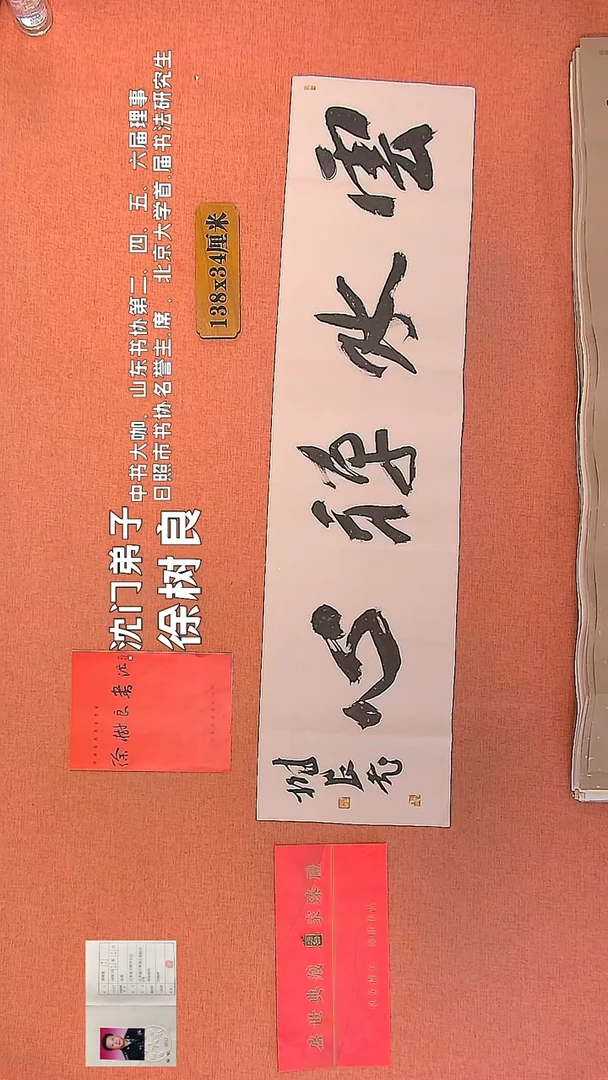 沈门弟子
徐树良
中书大咖、山东书协第二、四、五、六届理事
日照市书协名誉主席、北京大学首届书法研究生
138x34厘米
雲水禅心
树良书
徐樹良書法
盛世典藏